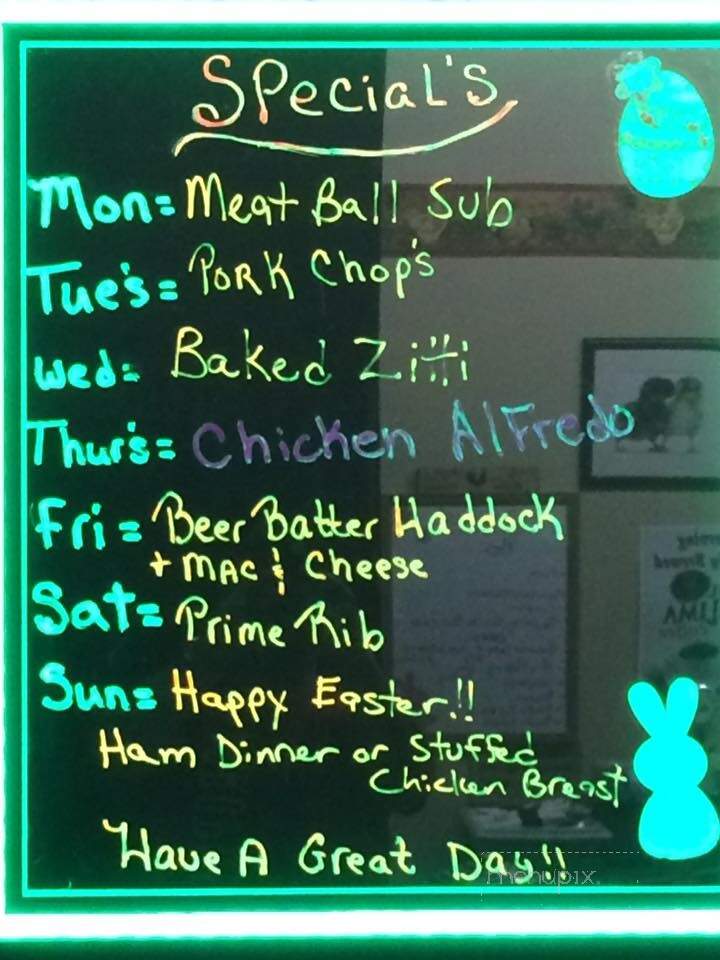 Special's
Mon= Meat Ball Sub
Tue's= Pork Chop's
Wed= Baked Ziti
Thur's= Chicken Alfredo
Fri= Beer Batter Haddock
+ Mac & Cheese
Sat= Prime Rib
Sun= Happy Easter!!
Ham Dinner or Stuffed
Chicken Breast
Have A Great Day!!
menupix